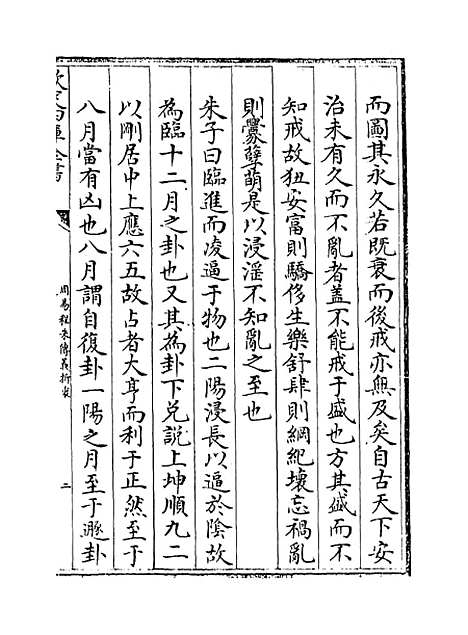 而圖其永久若既衰而後戒亦無及矣自古天下安
治未有久而不亂者蓋不能戒于盛也方其盛而不
知戒故狃安富則驕侈生樂舒肆則綱紀壞忘禍亂
則釁孽萌是以浸淫不知亂之至也
朱子曰臨進而凌逼于物也二陽浸長以逼於陰故
為臨十二月之卦也又其為卦下兌說上坤順九二
以剛居中上應六五故占者大亨而利于正然至于
八月當有凶也八月謂自復卦一陽之月至于遯卦
欽定四庫全書
周易程朱傳義折衷
二